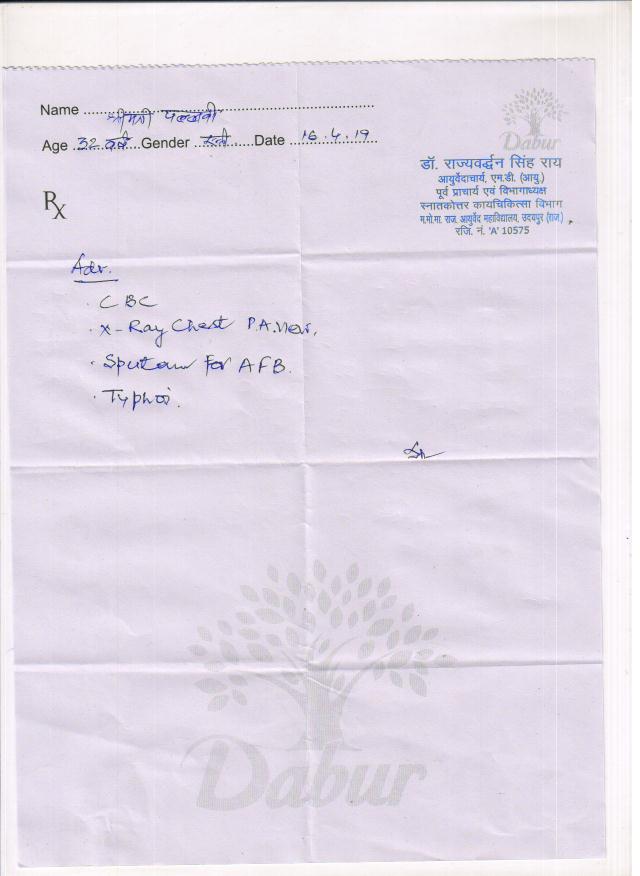 Name ........ श्रीमती पल्लवी
Age 32 वर्ष Gender स्त्री Date 16.4.19
Dabur
डॉ. राज्यवर्द्धन सिंह राय
आयुर्वेदाचार्य, एम.डी. (आयु.)
पूर्व प्राचार्य एवं विभागाध्यक्ष
स्नातकोत्तर कायचिकित्सा विभाग
म.मो.मा. राज. आयुर्वेद महाविद्यालय, उदयपुर (राज.)
रजि. नं. 'A' 10575
Rx
Adv.
· CBC
· X-Ray Chest P.A. View.
· Sputum For AFB.
· Typhoi.
Dabur